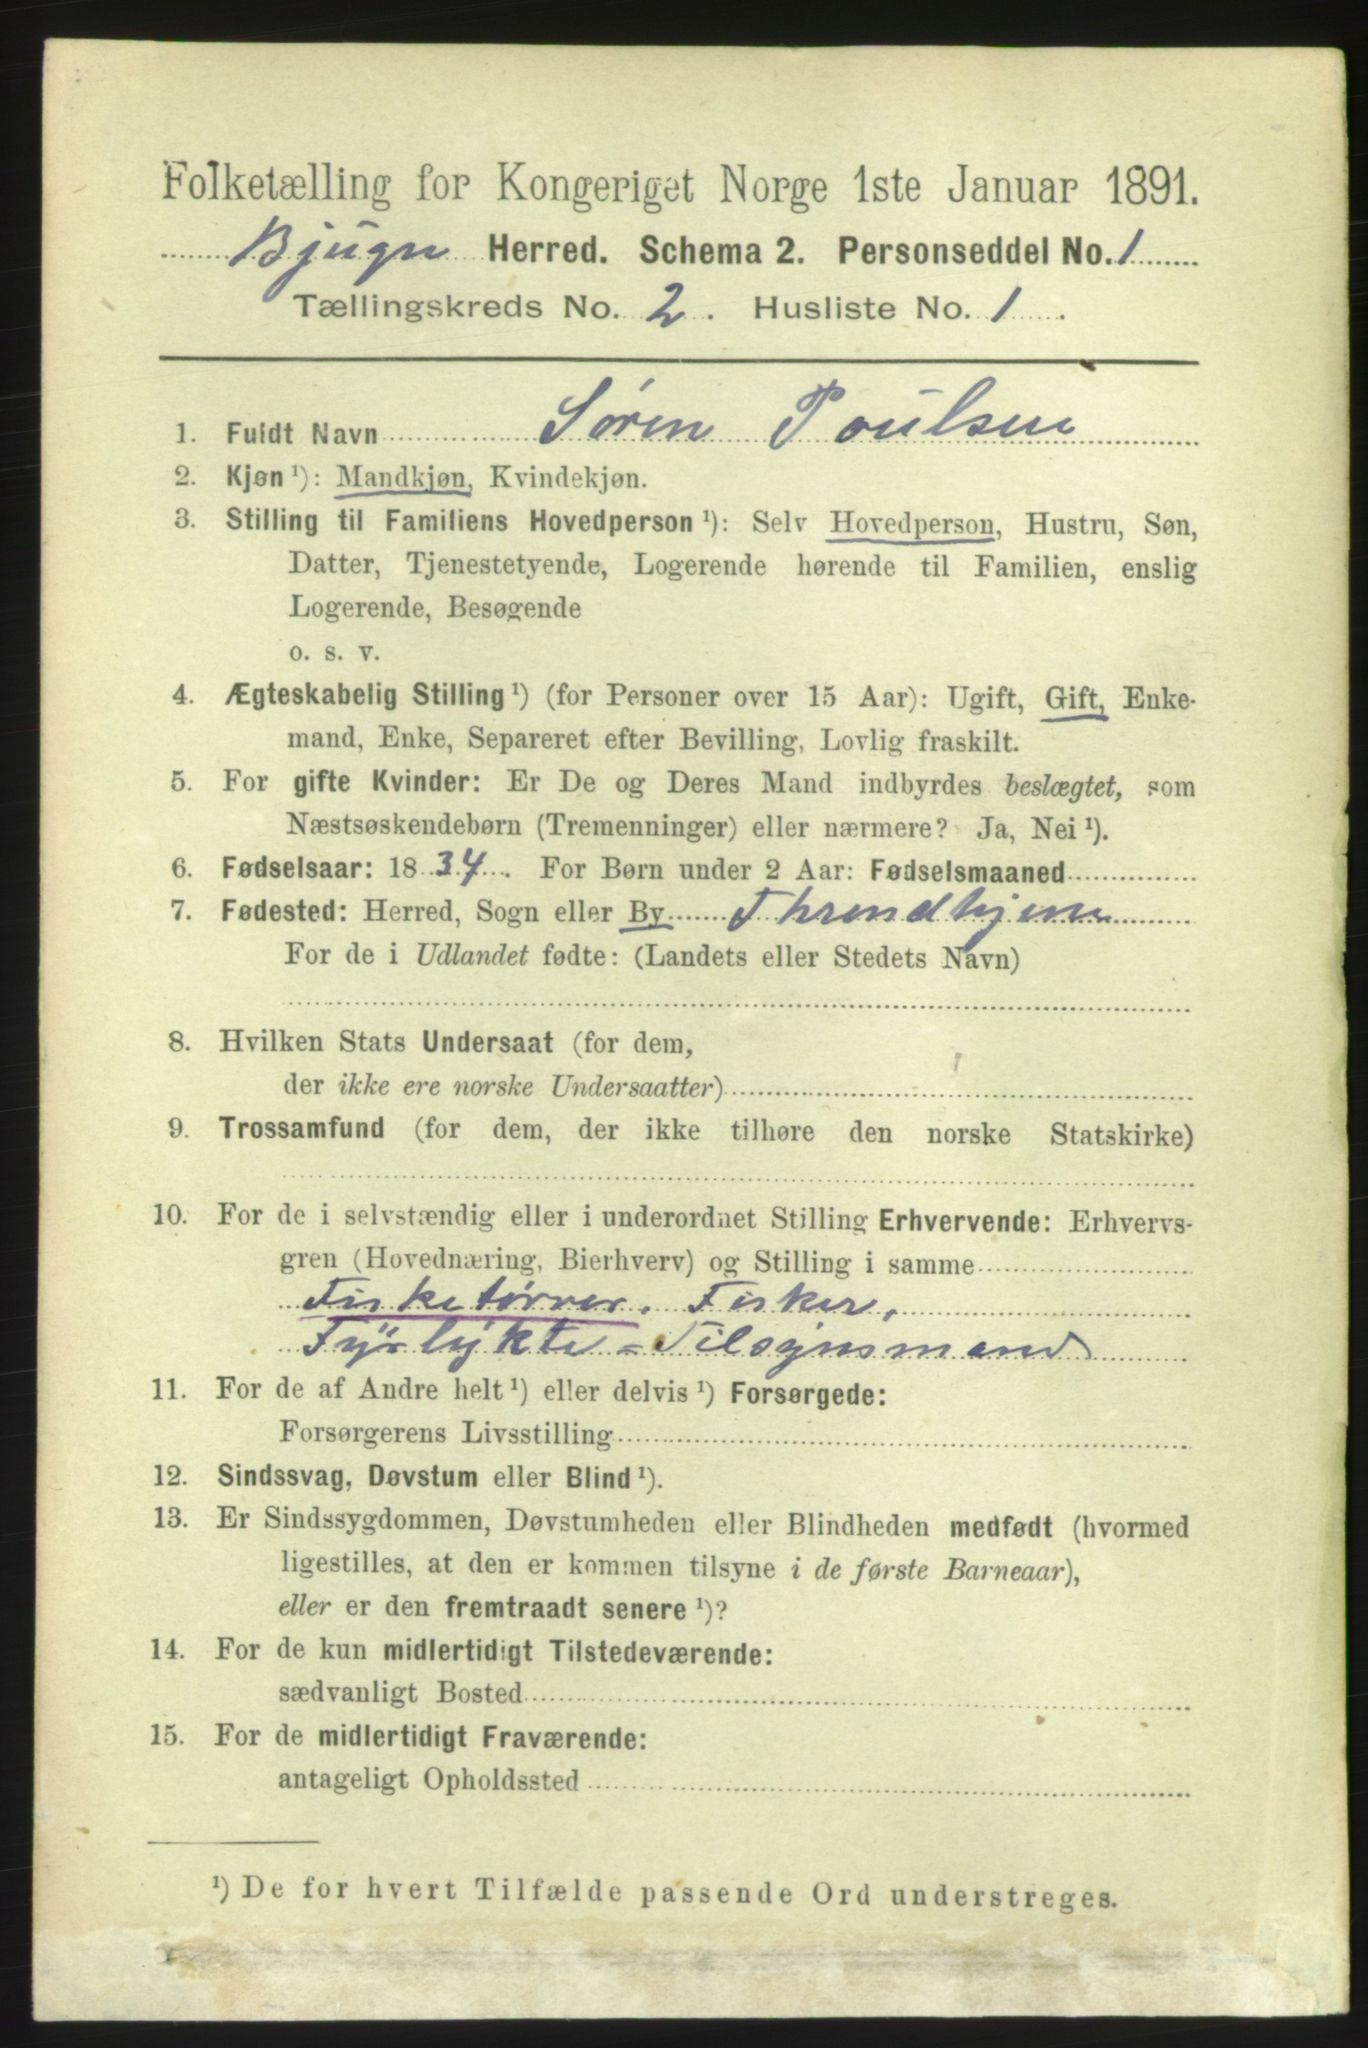 Folketælling for Kongeriget Norge 1ste Januar 1891.
Bjugn Herred. Schema 2. Personseddel No. 1
Tællingskreds No. 2. Husliste No. 1.
1. Fuldt Navn Søren Poulsen
2. Kjøn ¹): Mandkjøn, Kvindekjøn.
3. Stilling til Familiens Hovedperson ¹): Selv Hovedperson, Hustru, Søn,
Datter, Tjenestetyende, Logerende hørende til Familien, enslig
Logerende, Besøgende
o. s. v.
4. Ægteskabelig Stilling ¹) (for Personer over 15 Aar): Ugift, Gift, Enke-
mand, Enke, Separeret efter Bevilling, Lovlig fraskilt.
5. For gifte Kvinder: Er De og Deres Mand indbyrdes beslægtet, som
Næstsøskendebørn (Tremenninger) eller nærmere? Ja, Nei ¹).
6. Fødselsaar: 1834. For Børn under 2 Aar: Fødselsmaaned
7. Fødested: Herred, Sogn eller By Throndhjem
For de i Udlandet fødte: (Landets eller Stedets Navn)
8. Hvilken Stats Undersaat (for dem,
der ikke ere norske Undersaatter)
9. Trossamfund (for dem, der ikke tilhøre den norske Statskirke)
10. For de i selvstændig eller i underordnet Stilling Erhvervende: Erhvervs-
gren (Hovednæring, Bierhverv) og Stilling i samme
Fisketørrer. Fisker,
Fyrlykte-Tilsynsmand
11. For de af Andre helt ¹) eller delvis ¹) Forsørgede:
Forsørgerens Livsstilling
12. Sindssvag, Døvstum eller Blind ¹).
13. Er Sindssygdommen, Døvstumheden eller Blindheden medfødt (hvormed
ligestilles, at den er kommen tilsyne i de første Barneaar),
eller er den fremtraadt senere ¹)?
14. For de kun midlertidigt Tilstedeværende:
sædvanligt Bosted
15. For de midlertidigt Fraværende:
antageligt Opholdssted
¹) De for hvert Tilfælde passende Ord understreges.